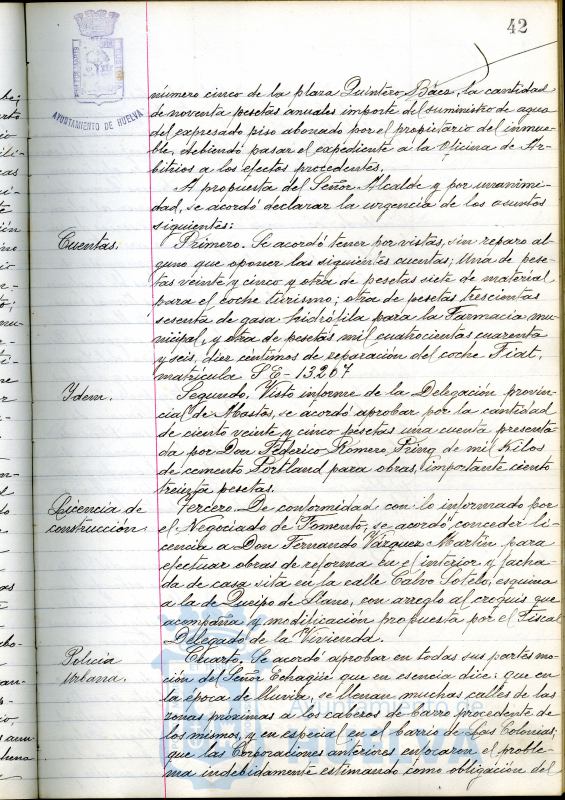 42
AYUNTAMIENTO DE HUELVA
número cinco de la plaza Quintero Báez, la cantidad
de noventa pesetas anuales importe del suministro de agua
del expresado piso abonado por el propietario del inmue-
ble, debiendo pasar el expediente a la Oficina de Ar-
bitrios a los efectos procedentes.
A propuesta del Señor Alcalde y por unanimi-
dad, se acordó declarar la urgencia de los asuntos
siguientes:
Cuentas.
Primero. Se acordó tener por vistas, sin reparo al-
guno que oponer las siguientes cuentas; Una de pese-
tas veinte y cinco y otra de pesetas siete de material
para el coche turismo; otra de pesetas trescientas
sesenta de gasa hidrófila para la Farmacia mu-
nicipal, y otra de pesetas mil cuatrocientas cuarenta
y seis, diez centimos de reparación del coche Fiat,
matrícula SE-13.267
Ydem.
Segundo. Visto informe de la Delegación provin-
cial de Abastos, se acordó aprobar por la cantidad
de ciento veinte y cinco pesetas una cuenta presenta-
da por Don Federico Romero Pring de mil Kilos
de cemento Portland para obras, importante ciento
treinta pesetas.
Licencia de
construcción.
Tercero. De conformidad con lo informado por
el Negociado de Fomento, se acordó conceder li-
cencia a Don Fernando Vázquez Martin para
efectuar obras de reforma en el interior y facha-
da de casa sita en la calle Calvo Sotelo, esquina
a la de Queipo de Llano, con arreglo al croquis que
acompaña y modificación propuesta por el Fiscal
Delegado de la Vivienda.
Policía
Urbana.
Cuarto. Se acordó aprobar en todas sus partes mo-
ción del Señor Echagüe que en esencia dice: que en
la época de lluvia, se llenan muchas calles de las
zonas próximas a los cabezos de barro procedente de
los mismos, y en especial en el barrio de Las Colonias;
que las Corporaciones anteriores enfocaron el proble-
ma indebidamente estimando como obligación del
Ayuntamiento de
HUELVA